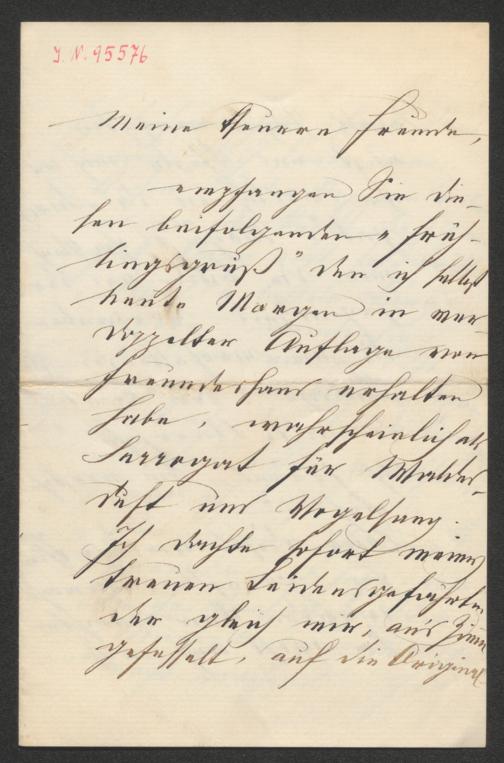 J. N. 95576
Meine theuern Freunde,
empfangen Sie die-
sen beifolgenden „Früh-
lingsgruß" den ich selbst
heute Morgen in ver
doppelter Auflage von
Freundeshand erhalten
habe, wahrscheinlich als
Surrogat für Waldes
duft und Vogelsang.
Ich dachte sofort meines
treuen Leidensgefährten
der gleich mir, an's Zimmer
gefesselt, auf die Original